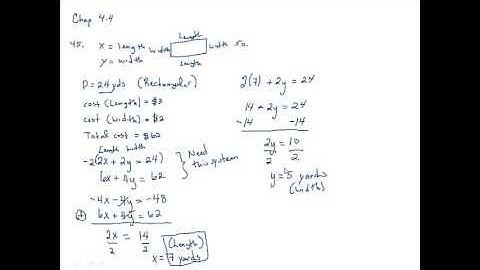 Chap 4.4
45. x = length
y = width
Length
width
width
Length
50.
P = 24 yds (Rectangular)
cost (Length) = $3
cost (width) = $2
Total cost = $62
Length width
-2(2x + 2y = 24)
6x + 4y = 62
} Need this system
-4x - 4y = -48
+ 6x + 4y = 62
2x/2 = 14/2
(Length)
x = 7 yards
2(7) + 2y = 24
14 + 2y = 24
-14 -14
2y/2 = 10/2
y = 5 yards
(width)